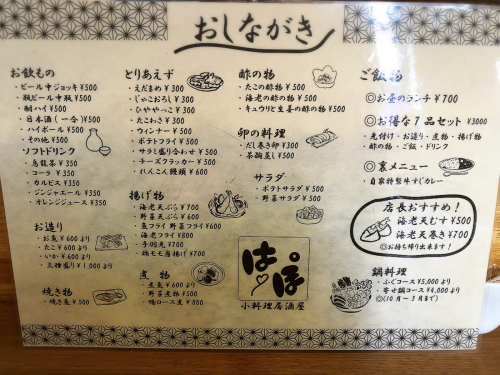 おしながき
お飲もの
・ビール中ジョッキ ¥500
・瓶ビール中瓶 ¥500
・酎ハイ ¥500
・日本酒(一合) ¥500
・ハイボール ¥500
・その他 ¥500
ソフトドリンク
・烏龍茶 ¥350
・コーラ ¥350
・カルピス ¥350
・ジンジャエール ¥350
・オレンジジュース ¥350
お造り
・お魚 ¥600より
・たこ ¥600より
・いか ¥600より
・三種盛り ¥1,000より
焼き物
・焼き魚 ¥500
とりあえず
・えだまめ ¥300
・じゃこおろし ¥300
・ひややっこ ¥300
・たこわさ ¥300
・ウィンナー ¥500
・ポテトフライ ¥500
・サラミ盛り合わせ ¥500
・チーズクラッカー ¥500
・れんこん饅頭 ¥600
揚げ物
・海老天ぷら ¥700
・野菜天ぷら ¥600
・魚フライ 野菜フライ ¥600
・海老フライ ¥800
・手羽先 ¥700
・鶏モモ唐揚げ ¥700
煮物
・煮魚 ¥600より
・野菜煮物 ¥500
・鴨ロース煮 ¥800
酢の物
・たこの酢物 ¥500
・海老の酢の物 ¥500
・キュウリと生姜の酢の物 ¥500
卵の料理
・だし巻き卵 ¥300
・茶碗蒸し ¥500
サラダ
・ポテトサラダ ¥500
・野菜サラダ ¥500
ぱぽ
小料理居酒屋
ご飯物
◎お昼のランチ ¥700
◎お得な7品セット ¥3000
・先付け・お造り・煮物・揚げ物
・酢の物・ご飯・ドリンク
◎裏メニュー
・自家特製牛すじカレー
店長おすすめ!
海老天むす ¥500
海老天巻き ¥700
◎お持ち帰り出来ます!
鍋料理
・ふぐコース ¥5,000より
・寄せ鍋コース ¥4,000より
◎(10月〜3月まで)